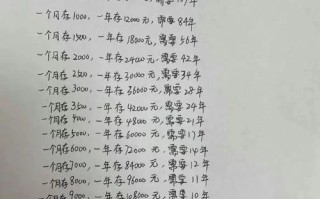 一个月存1000,一年存12000元,需要84年
一个月存1500,一年存18000元,需要56年
一个月存2000,一年存24000元,需要42年
一个月存2500,一年存30000元,需要34年
一个月存3000,一年存36000元,需要28年
一个月存3500,一年存42000元,需要24年
一个月存4000,一年存48000元,需要21年
一个月存5000,一年存60000元,需要17年
一个月存6000,一年存72000元,需要14年
一个月存7000,一年存84000元,需要12年
一个月存8000,一年存96000元,需要11年
一个月存9000,一年存108000元,需要10年